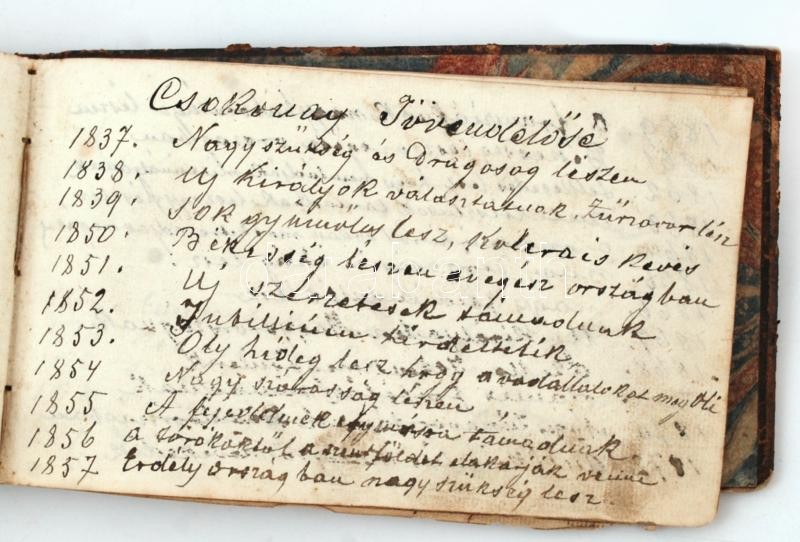 Csokonay Jövendölőse
1837. Nagy szükség és Drágoság lészen
1838. Uj Királyok választatnak, Zűrzavar lész
1839. Sok gyümölcs lesz, Kolera is kevés
1850. Békesség lészen az egész országban
1851. Uj szerzetesek támadnak
1852. Jubileium hirdettetik
1853. Oly hideg lesz hogy a vadállatokat meg öli
1854 Nagy szárosság lészen
1855 A fejedelmek egymásra támadnak
1856 a törököktől a szentföldet elakarják venni
1857 Erdély országban nagy szükség lesz.